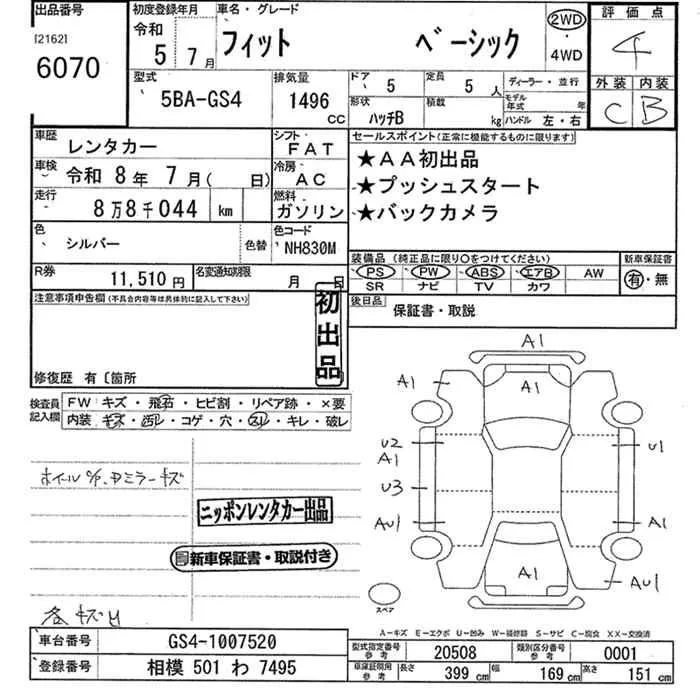 出品番号
[2162]
6070
初度登録年月
令和
5年 7月
車名・グレード
フィット ベーシック
2WD
・
4WD
評価点
4
外装 内装
C B
型式
5BA-GS4
排気量
1496
CC
ドア 5
定員 5 人
形状 ハッチB
積載 kg
ディーラー・並行
モデル年式 年
ハンドル 左・右
車歴 レンタカー
シフト FAT
車検 令和 8年 7月( 日)
冷房 AC
走行 8万8千044 km
燃料 ガソリン
色 シルバー
色替
色コード NH830M
R券 11,510円
名変通知期限 月 日
セールスポイント(正常に機能するものに限ります)
★AA初出品
★プッシュスタート
★バックカメラ
装備品(純正品に限り○をつけてください)
PS PW ABS エアB AW
SR ナビ TV カワ
新車保証書
有・無
後日品 保証書・取説
注意事項申告欄(不具合内容等は具体的に記入して下さい)
初出品
修復歴 有〔箇所
検査員
記入欄
FW キズ・飛石・ヒビ割・リペア跡・×要
内装 キズ・汚レ・コゲ・穴・スレ・キレ・破レ
ミラーキズ
ニッポンレンタカー出品
新車保証書・取説付き
A1
A1
A1
U2
A1
U1
U3
AU1
A1
A1
AU1
スペア
A−キズ E−エクボ U−凹み W−補修跡 S−サビ C−腐食 XX−交換済
車台番号 GS4-1007520
登録番号 相模 501 わ 7495
型式指定番号
参考
20508
類別区分番号
参考
0001
車庫証明用
参考
長さ 399 cm
幅 169 cm
高さ 151 cm